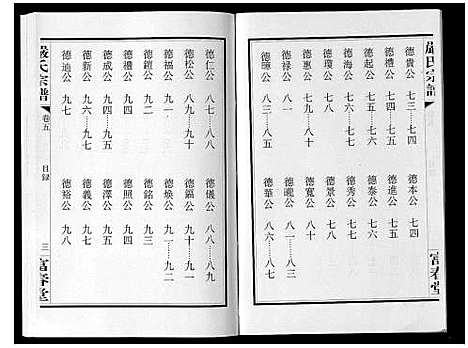 嚴氏宗譜
德貴公 七三…七四
德本公 七四
德禮公 七四…七五
德進公 七五
德起公 七五…七六
德泰公 七六
德海公 七六
德秀公 七六
德瓊公 七六
德景公 七七
德惠公 七八…七九
德寬公 八十
德祿公 八一
德暉公 八三…八五
德華公 八六…八七
富春堂
德仁公 八七…八八
德儀公 八八…八九
德松公 八九…九十
德鎘公 九十…九一
德福公 九一
德煥公 九一…九二
德鎧公 九二
德銘公 九三
德禮公 九四
德照公 九四
德澤公 九五
德新公 九六…九七
德義公 九七
德迪公 九七
德裕公 九八
嚴氏宗譜
卷五
目録
三
富春堂